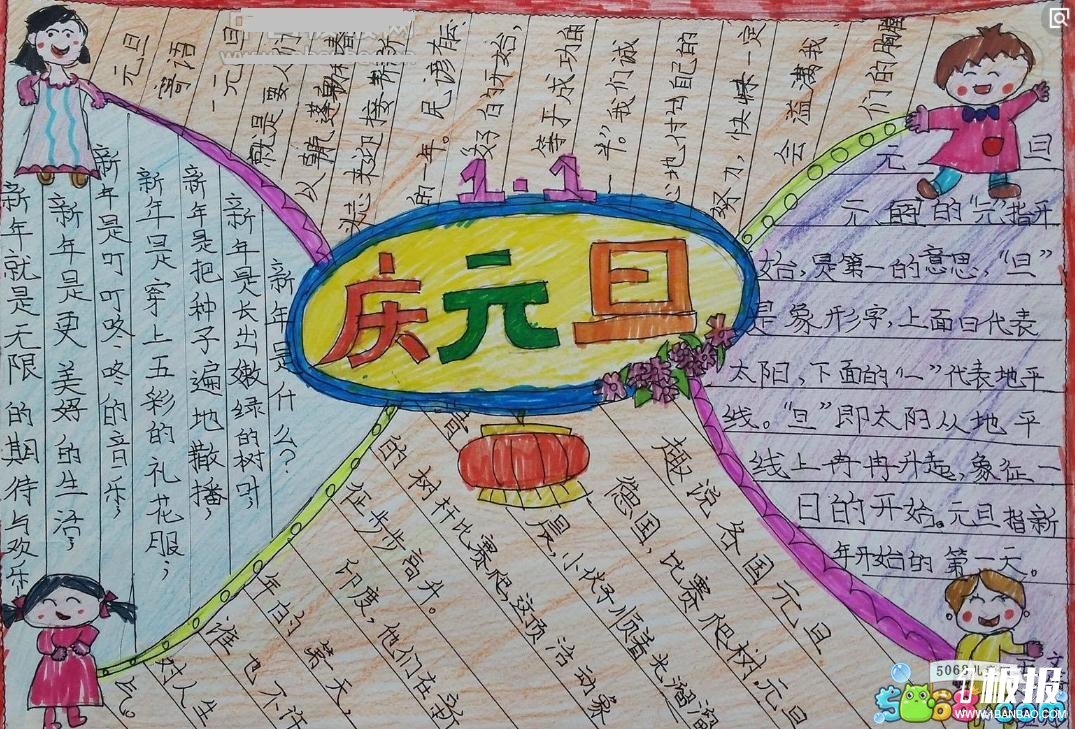 1·1
庆元旦
元旦
寄语
元旦
就是要人们
来迎接
的一年。民谚云:
好的开始,
等于成功的
一半。”我们诚
心地付出自己的
努力,快乐一定
会溢满我
们的胸膛
新年是什么?
新年是长出嫩绿的树叶,
新年是把种子遍地散播,
新年是穿上五彩的礼花服;
新年是叮叮咚咚的音乐;
新年是更美好的生活;
新年就是无限的期待与欢乐
元旦
元旦的“元”指开
始,是第一的意思,“旦”
是象形字,上面日代表
太阳,下面的“一”代表地平
线。“旦”即太阳从地平
线上冉冉升起,象征一
日的开始。元旦指新
年开始的第一天。
趣说各国元旦
德国,比赛爬树,元旦
晨,小伙子顺着光溜溜
的树杆比赛爬,这项活动象
征步步高升。
印度,他们在新
年的第一天,
谁也不许
对人生
气。
5068儿
5068.com
1极报
WWW.1BANBAO.COM